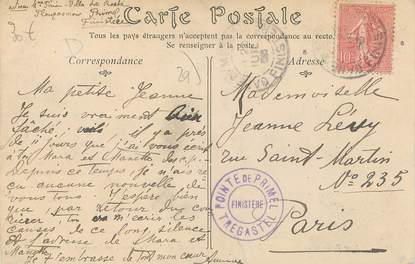 Carte Postale
Tous les pays étrangers n'acceptent pas la correspondance au recto.
Se renseigner à la poste.
Plougasnou Primel
Finistère
Correspondance
Adresse
Ma petite Jeanne
Je suis vraiment bien
fâchée, il y a près
de jours que j'ai vous écrit
à toi Mara et Manette
Depuis ce temps, je n'ai re
çu aucune nouvelle de
vous tous J'espère bien
que par retour du cou
rrier, tu m'écris les
causes de ce long silence
et l'adresse de Mara et
Manette
Je t'embrasse de tout mon cœur
Mademoiselle
Jeanne Lévy
rue Saint-Martin
No 235
Paris
POINTE DE PRIMEL
FINISTÈRE
TREGASTEL
10